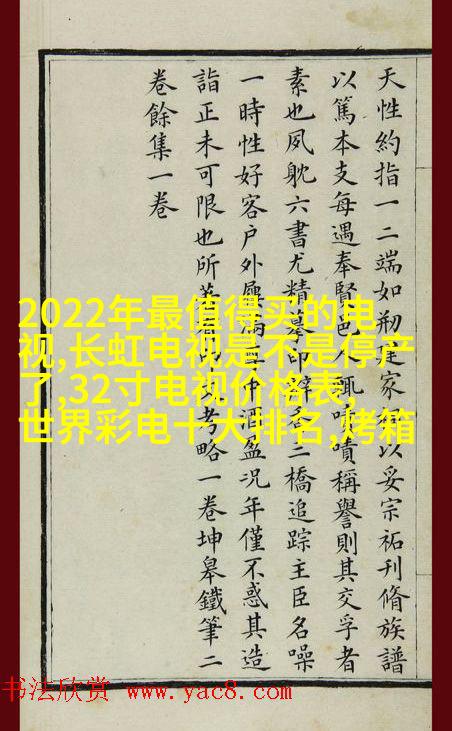 天性約指一二端如刱建家 以妥宗祏刊脩族譜
以篤本支每遇奉賢邑人輒嘖嘖稱譽則其交孚者
素也夙躭六書尤精摹印 香三橋追踪主臣名噪
一時性好客户外屨滿座中酒盈况年僅不惑其造
詣正未可限也所著 考略一卷坤皋鐵筆二
卷餘集一卷
2022年最值得买的电
视,长虹电视是不是停产
了,32寸电视价格表,
世界彩电十大排名,烤箱
书法欣赏 www.yac8.com